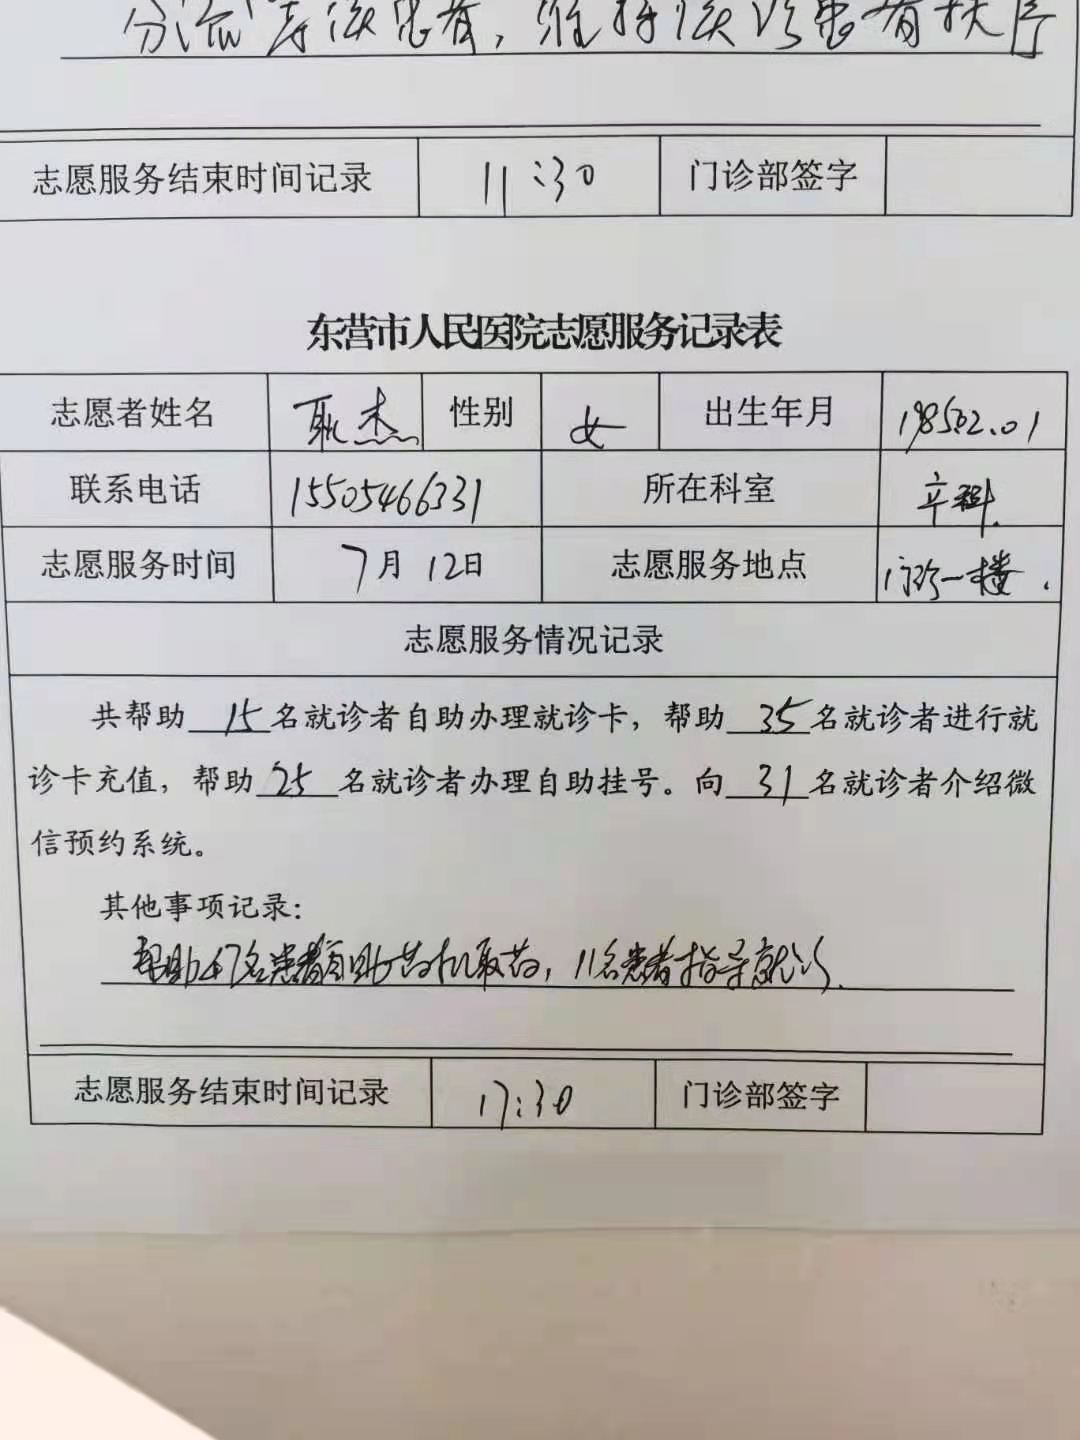 分流等候患者，维持候诊患者秩序
志愿服务结束时间记录 11:30 门诊部签字
东营市人民医院志愿服务记录表
志愿者姓名 耿杰 性别 女 出生年月 198502.01
联系电话 15505466331 所在科室 产科.
志愿服务时间 7月12日 志愿服务地点 门诊一楼.
志愿服务情况记录
共帮助 15 名就诊者自助办理就诊卡，帮助 35 名就诊者进行就
诊卡充值，帮助 25 名就诊者办理自助挂号。向 31 名就诊者介绍微
信预约系统。
其他事项记录：
帮助47名患者自助药机取药，11名患者指导就诊.
志愿服务结束时间记录 17:30 门诊部签字